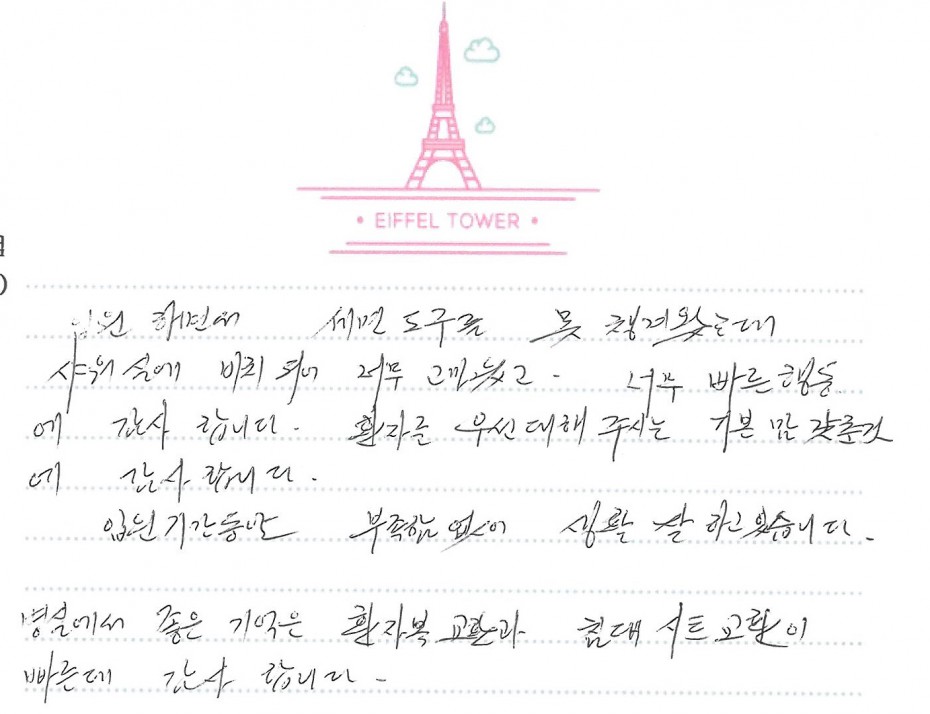 • EIFFEL TOWER •
입원 하면서 세면 도구를 못 챙겨왔는데
샤워실에 비치 되어 너무 고마웠고. 너무 빠른행동
에 감사 합니다. 환자를 우선 대해 주시는 기본 맘 갖춘것
에 감사 합니다.
입원기간동안 부족함 없이 생활 잘 하고 있습니다.
병실에서 좋은 기억은 환자복 교환과 침대 시트 교환이
빠른데 감사 합니다.